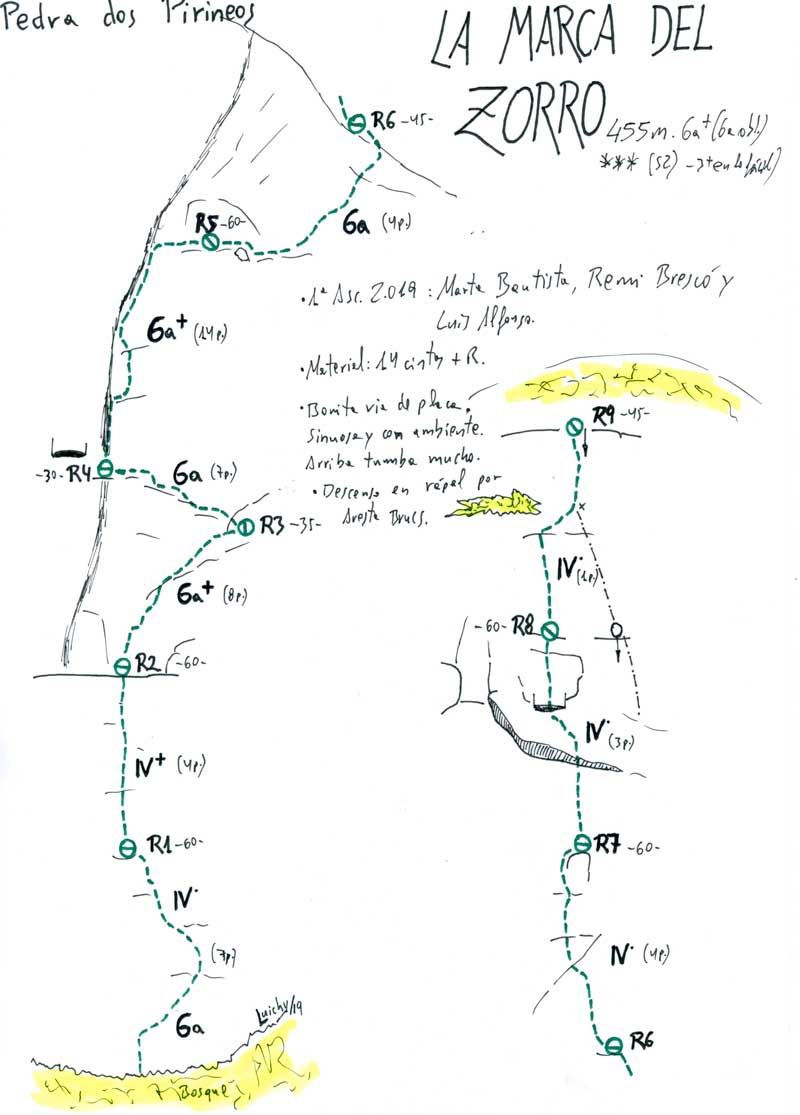 Pedra dos Pirineos
LA MARCA DEL
ZORRO
455m. 6a+ (6a obl)
*** (S2)
R6 -45-
R5 -60-
6a (4p.)
6a+ (14p.)
• 1ª Asc. 2.019 : Marta Bautista, Remi Brescó y
Luis Alfonso.
• Material: 14 cintas + R.
• Bonita vía de placa.
Sinuosa y con ambiente.
Arriba tumba mucho.
• Descenso en rápel por
Aresta Brucs.
-30- R4
6a (7p.)
R3 -35-
6a+ (8p.)
R2 -60-
IV+ (4p.)
R1 -60-
IV·
(7p)
6a
Luichy/19
Bosque
R9 -45-
IV· (1p.)
-60- R8
IV·
(3p.)
R7 -60-
IV· (4p.)
R6